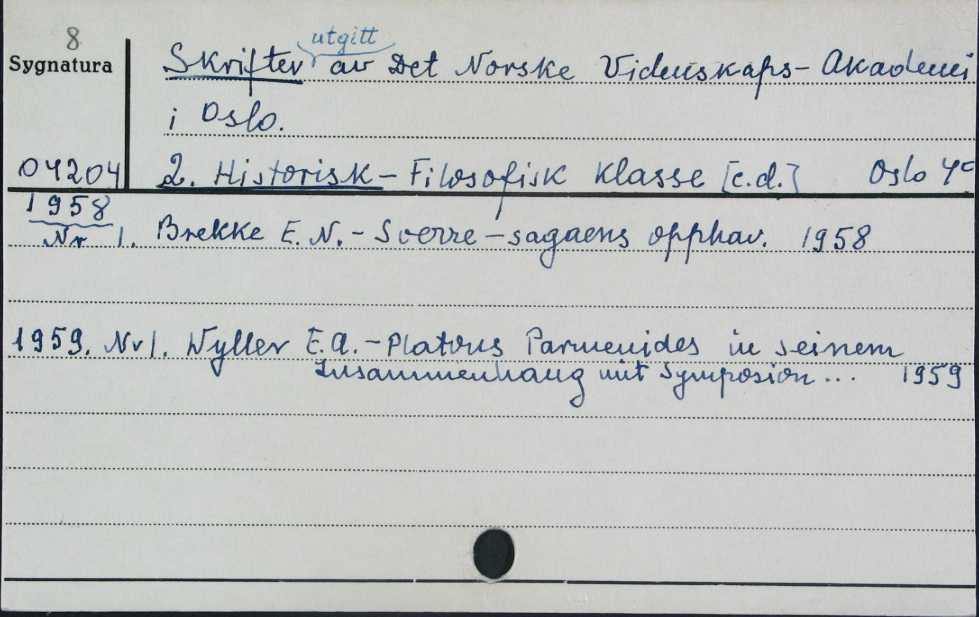 8
Sygnatura
utgitt
Skrifter av Det Norske Videnskaps-Akademi
i Oslo.
04204 2. Historisk-Filosofisk Klasse [c.d.] Oslo 4°
1958
Nr 1. Brekke E.N.-Sverre-sagaens opphav. 1958
1959. Nr 1. Wyller E.A.-Platons Parmenides in seinem
Zusammenhang mit Symposion... 1959